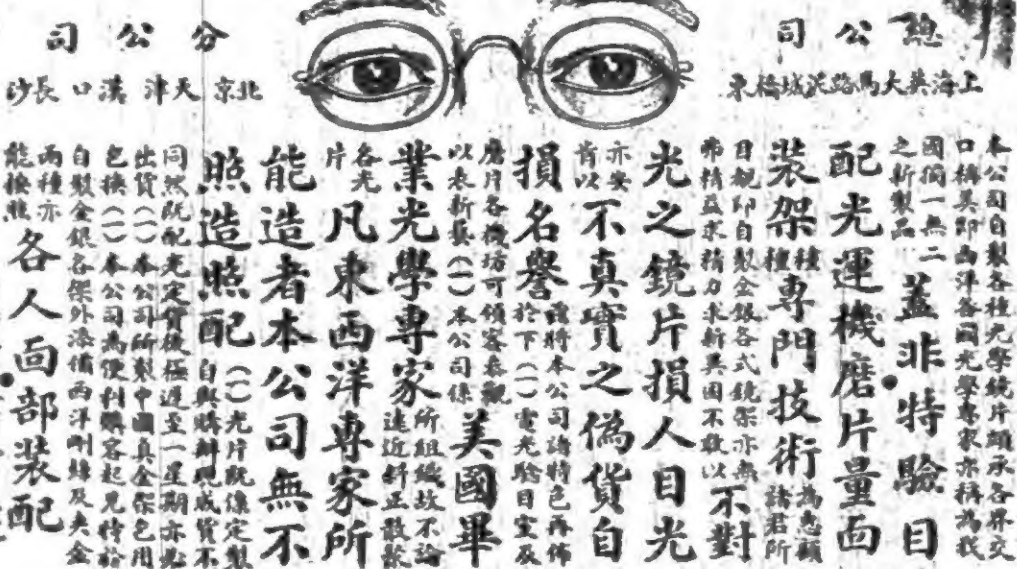 總公司
上海英大馬路泥城橋東
分公司
北京 天津 漢口 長沙
本公司自製各種光學鏡片頗承各界交
口稱美即西洋各國光學專家亦稱為我
國獨一無二
之新製品
蓋非特驗目
配光運機磨片量面
裝架種種專門技術為惠顧
諸君所
目覩即自製金銀各式鏡架亦無
弗精益求精力求新美固不敢以不對
光之鏡片損人目光
亦安
肯以不真實之偽貨自
損名譽謹將本公司諸特色再佈
於下(一)電光驗目室及
磨片各機坊可領客參觀
以表新藝(一)本公司係美國畢
業光學專家所組織故不論
遠近斜正散鬆
各光
片凡東西洋專家所
能造者本公司無不
照造照配(一)光片既係定製
自與購辦現成貨不
同然既配光定貨後極遲至一星期亦必
出貨(一)本公司所製中國真金架包用
包換(一)本公司為便利購客起見特於
自製金銀各架外添備西洋剛絲及夾金
兩種亦
能換照各人面部裝配